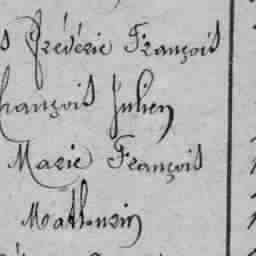 Frédéric François
François Julien
Marie François
Mathurin